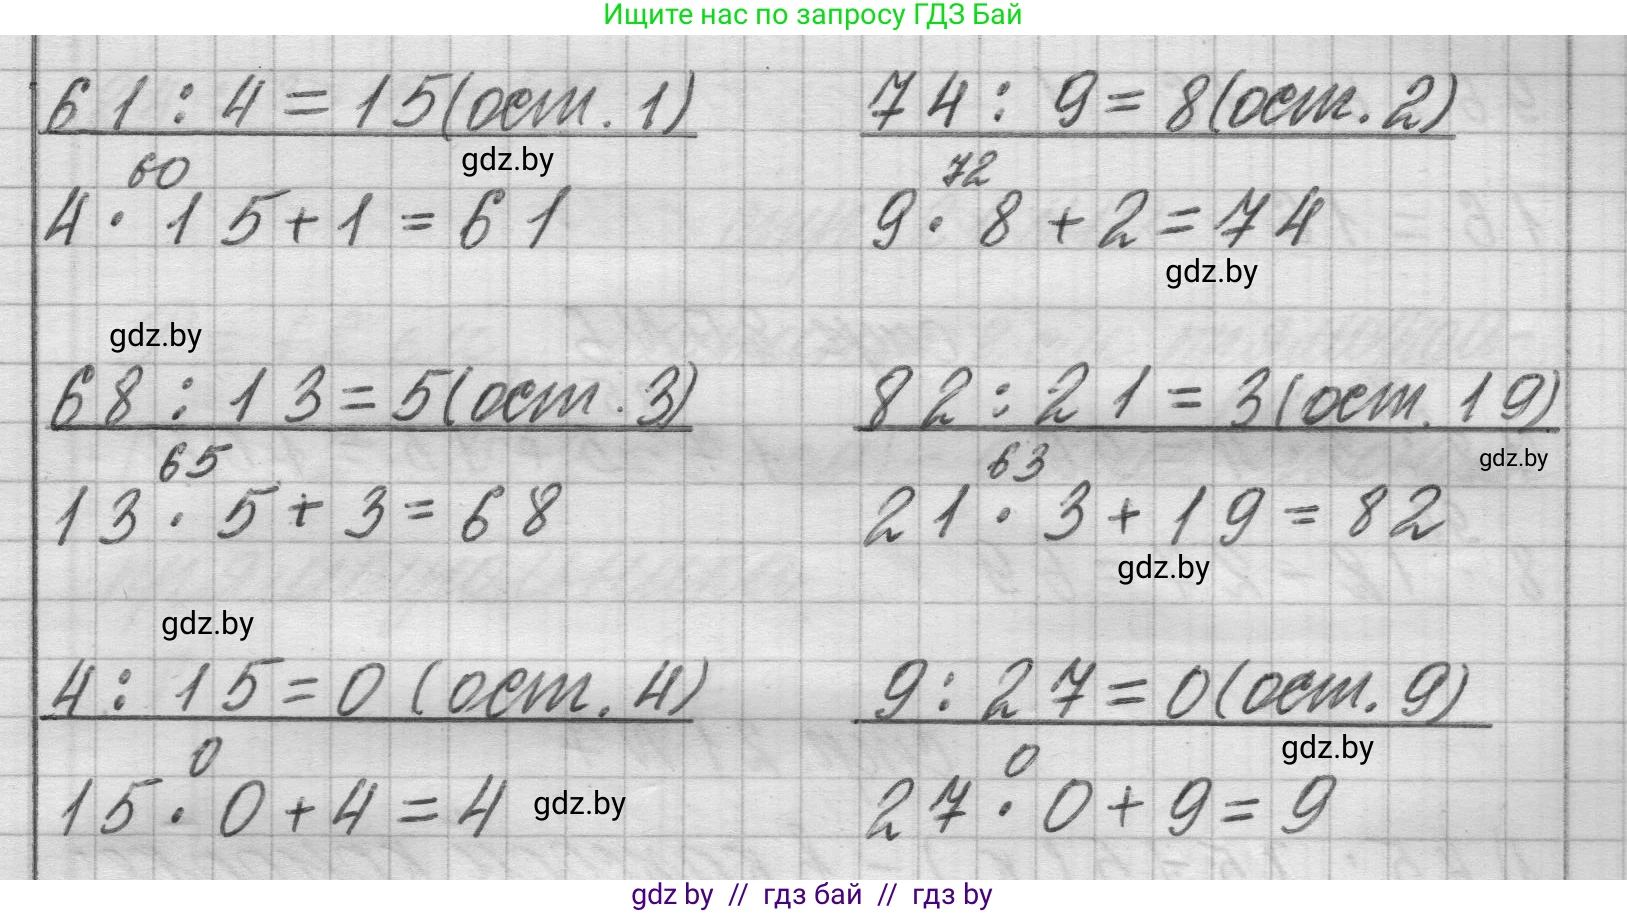 Ищите нас по запросу ГДЗ Бай
61 : 4 = 15(ост. 1)
74 : 9 = 8(ост. 2)
gdz.by
60
4 · 15 + 1 = 61
72
9 · 8 + 2 = 74
gdz.by
gdz.by
68 : 13 = 5(ост. 3)
82 : 21 = 3(ост. 19)
gdz.by
65
13 · 5 + 3 = 68
63
21 · 3 + 19 = 82
gdz.by
gdz.by
4 : 15 = 0 (ост. 4)
9 : 27 = 0(ост. 9)
gdz.by
0
15 · 0 + 4 = 4
gdz.by
0
27 · 0 + 9 = 9
gdz by // гдз бай // гдз by